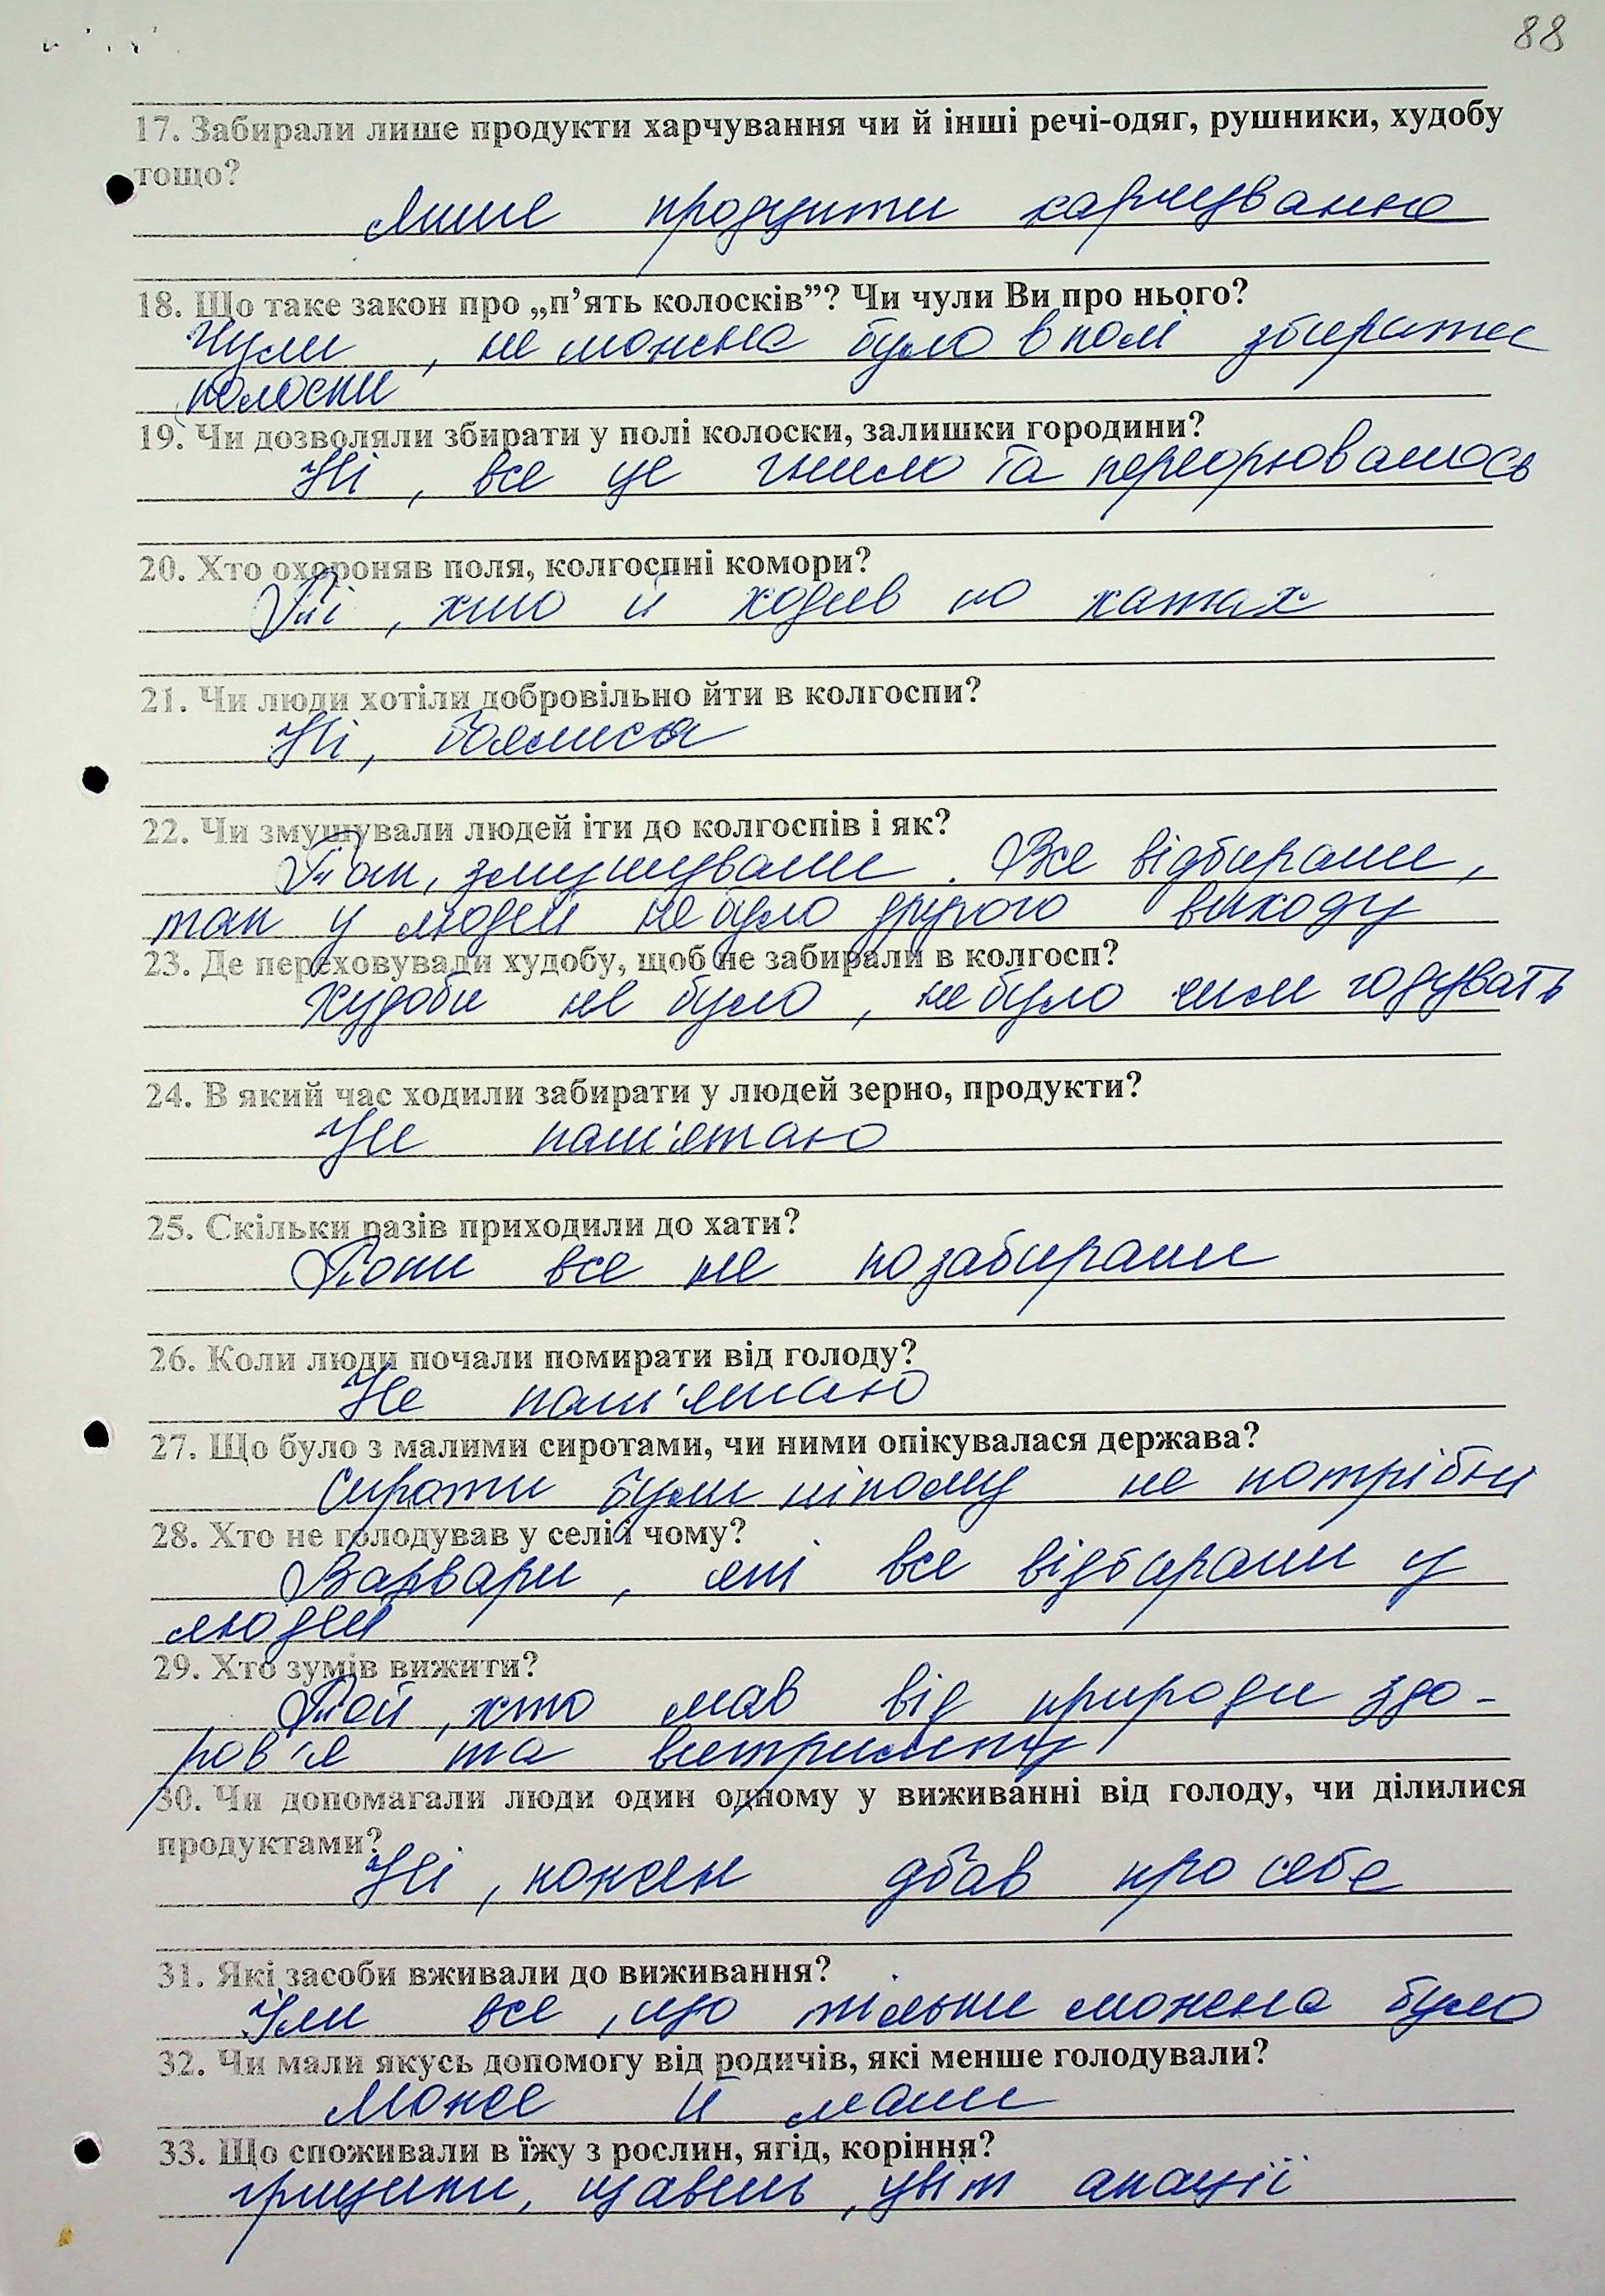 88
17. Забирали лише продукти харчування чи й інші речі-одяг, рушники, худобу
тощо?
Лише продукти харчування
18. Що таке закон про „п’ять колосків”? Чи чули Ви про нього?
Чули, не можна було в полі збирати
колоски
19. Чи дозволяли збирати у полі колоски, залишки городини?
Ні, все це гнило та переорювалось
20. Хто охороняв поля, колгоспні комори?
Ті, хто й ходив по хатах
21. Чи люди хотіли добровільно йти в колгоспи?
Ні, боялися
22. Чи змушували людей іти до колгоспів і як?
Так, змушували. Все відбирали,
так у людей не було другого виходу
23. Де переховували худобу, щоб не забирали в колгосп?
Худоби не було, не було чим годувать
24. В який час ходили забирати у людей зерно, продукти?
Не пам'ятаю
25. Скільки разів приходили до хати?
Поки все не позабирали
26. Коли люди почали помирати від голоду?
Не пам'ятаю
27. Що було з малими сиротами, чи ними опікувалася держава?
Сироти були нікому не потрібні
28. Хто не голодував у селі і чому?
Варвари, які все відбирали у
людей
29. Хто зумів вижити?
Той, хто мав від природи здо-
ров'я та витримку
30. Чи допомагали люди один одному у виживанні від голоду, чи ділилися
продуктами?
Ні, кожен дбав про себе
31. Які засоби вживали до виживання?
Їли все, що тільки можна було
32. Чи мали якусь допомогу від родичів, які менше голодували?
Може й мали
33. Що споживали в їжу з рослин, ягід, коріння?
грицики, щавель, цвіт акації